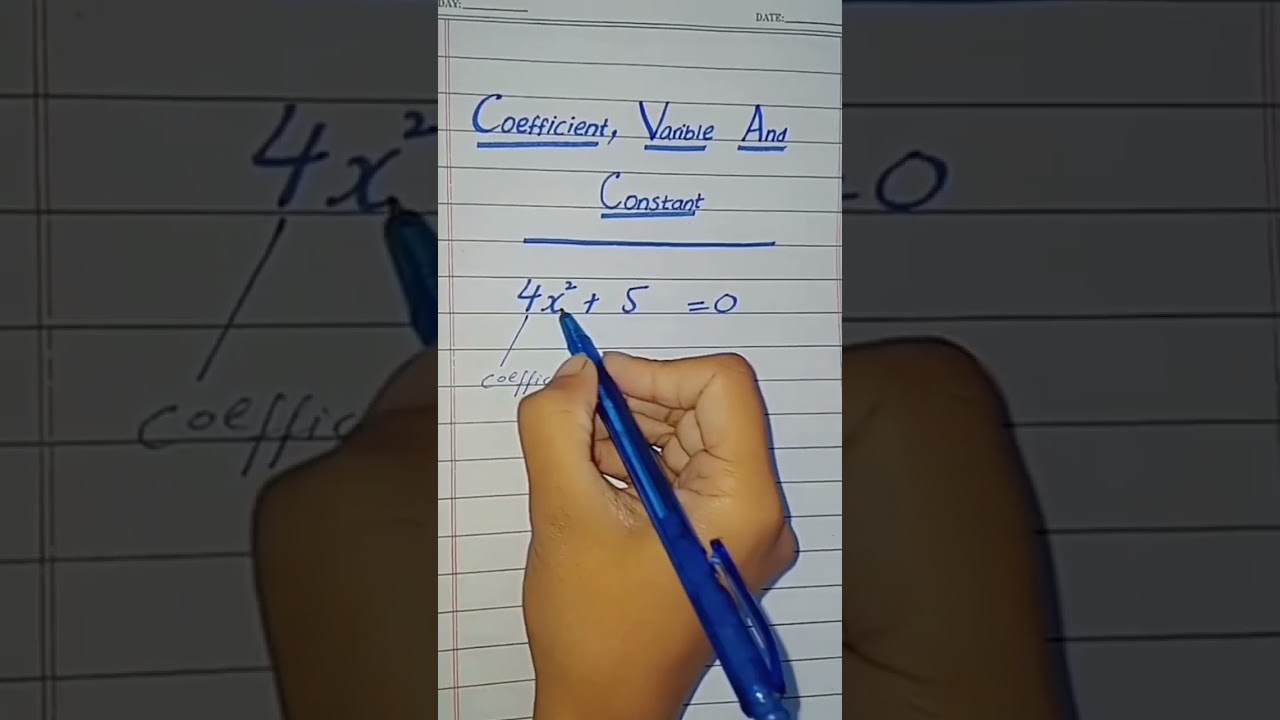 DAY:
DATE:
Coefficient, Varible And
Constant
4x² + 5 =0